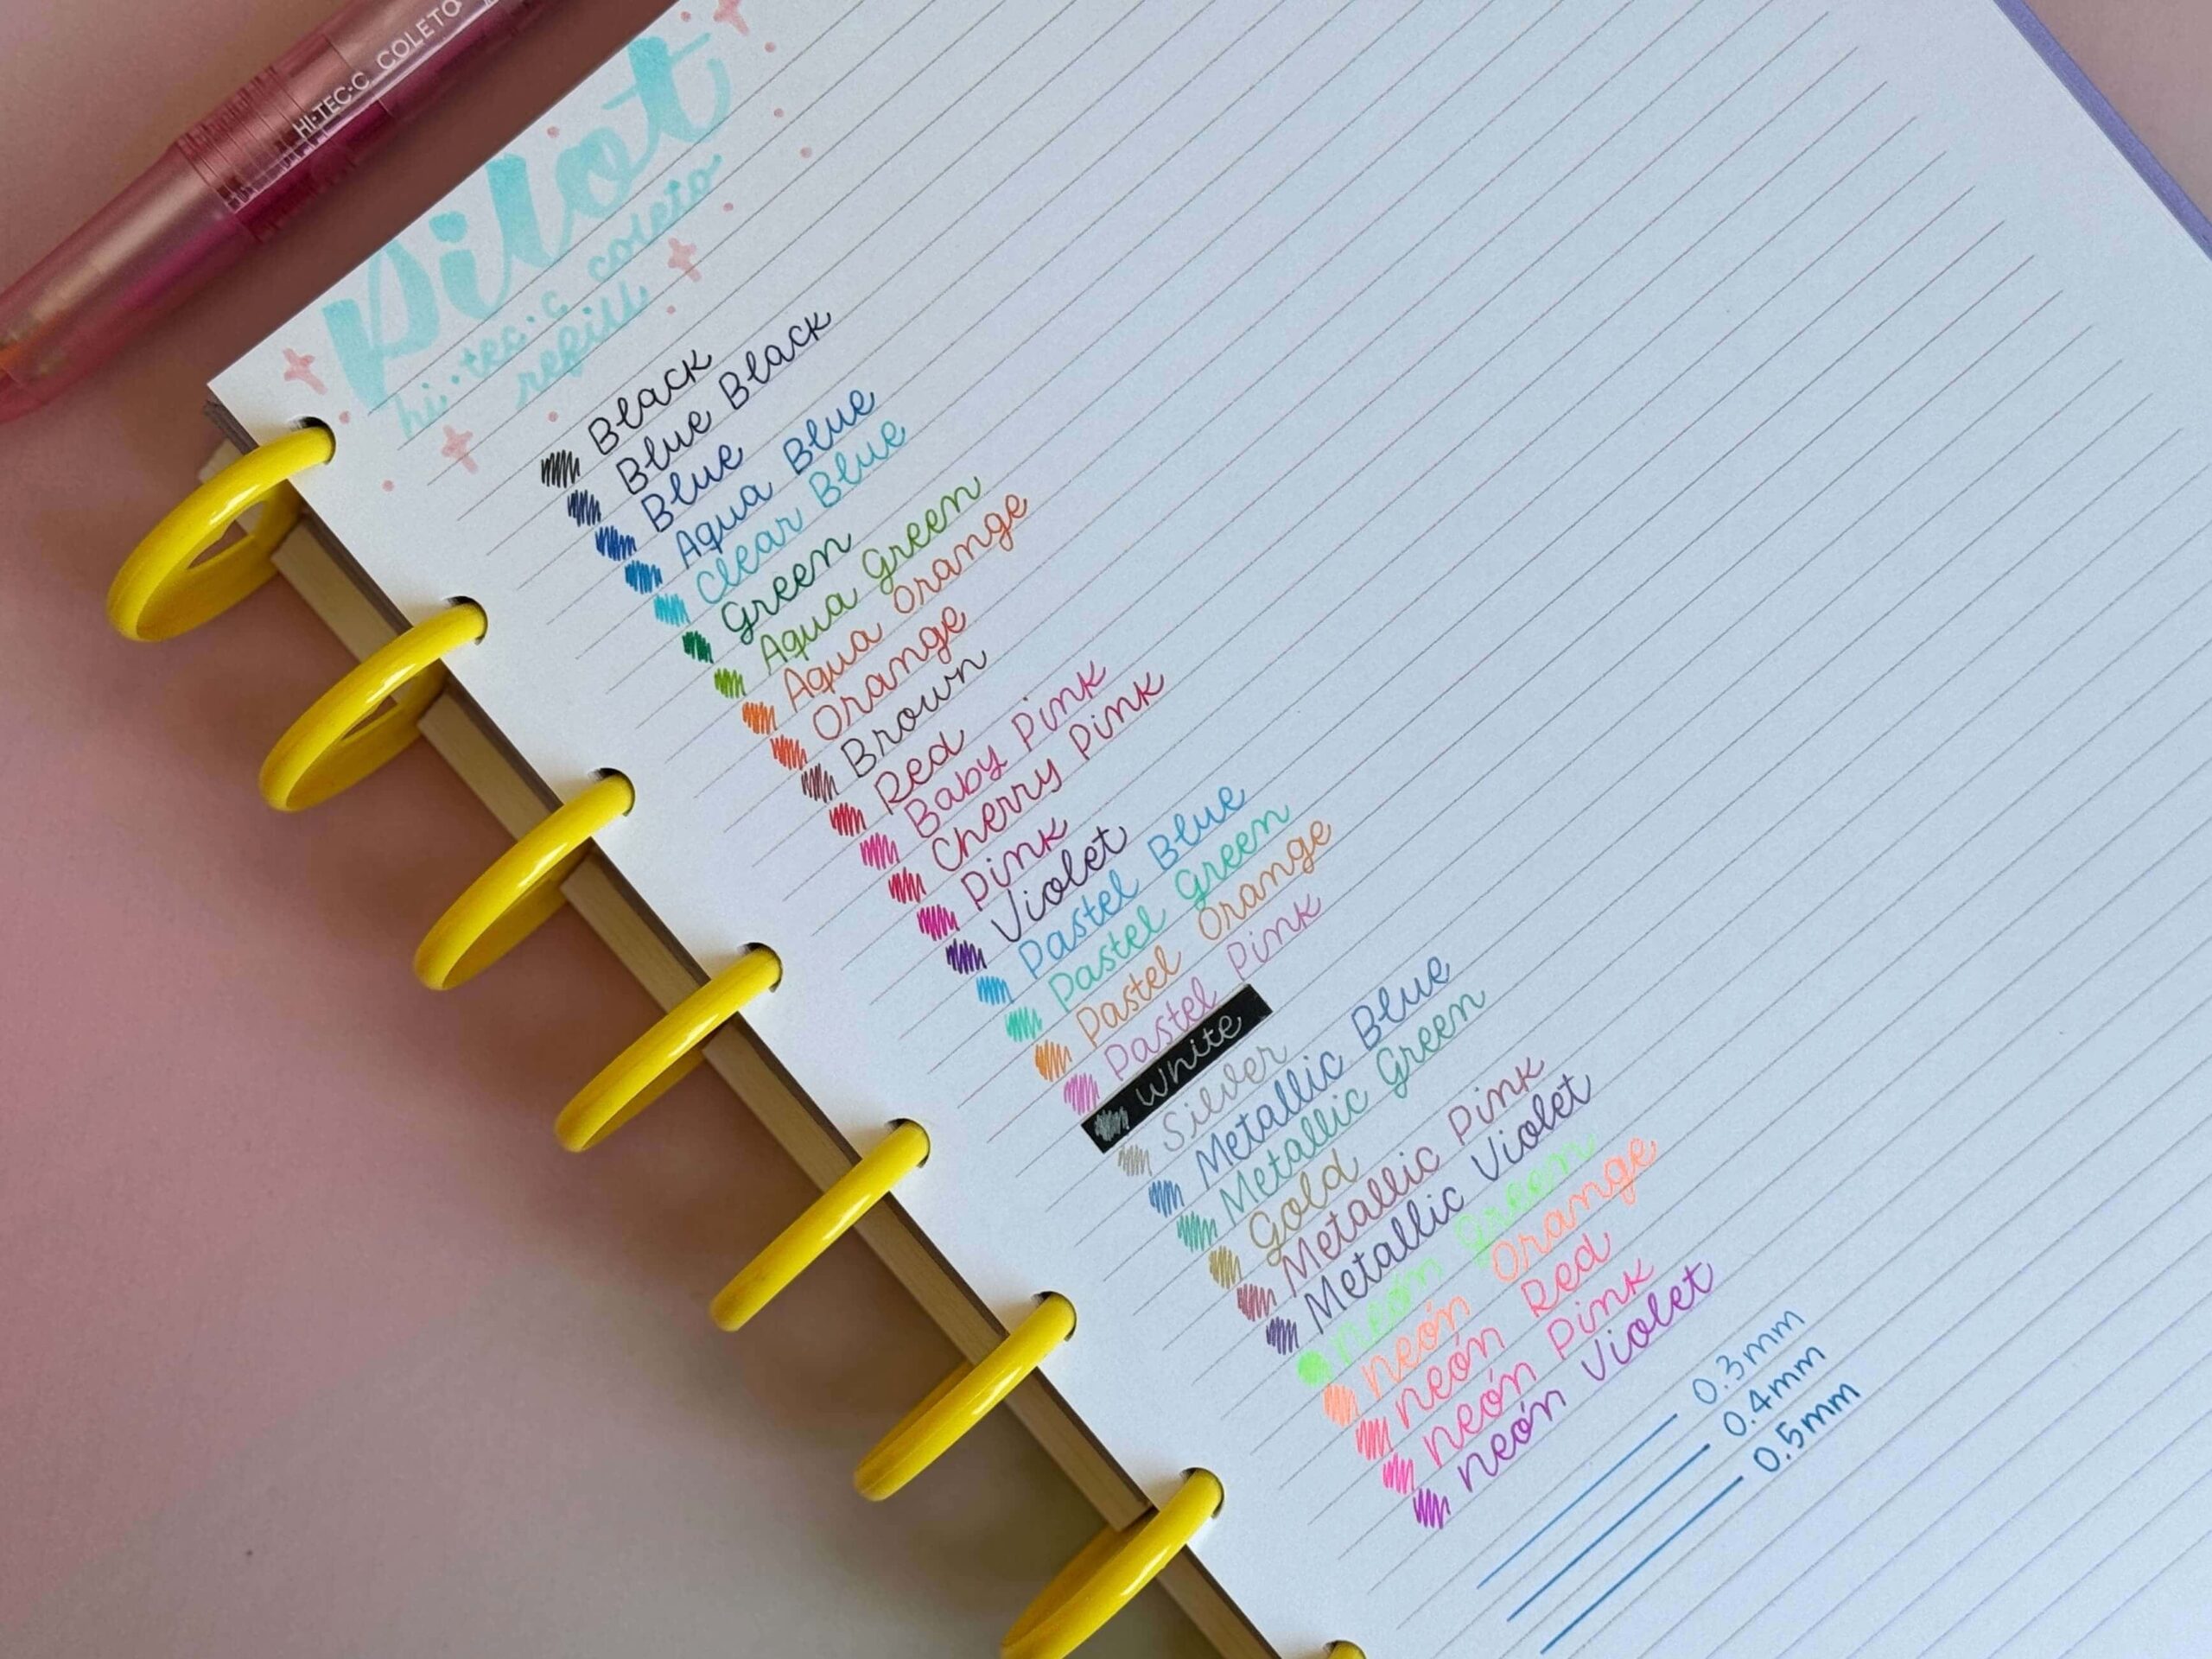 HI-TEC-C COLETO
pilot
hi·tec·c coleto
refill
Black
Blue Black
Blue
Aqua Blue
Clear Blue
Green
Aqua Green
Aqua Orange
Orange
Brown
Red
Baby Pink
Cherry Pink
Pink
Violet
Pastel Blue
Pastel Green
Pastel Orange
Pastel Pink
White
Silver
Metallic Blue
Metallic Green
Gold
Metallic Pink
Metallic Violet
neón Green
neón Orange
neón Red
neón Pink
neón Violet
0.3mm
0.4mm
0.5mm